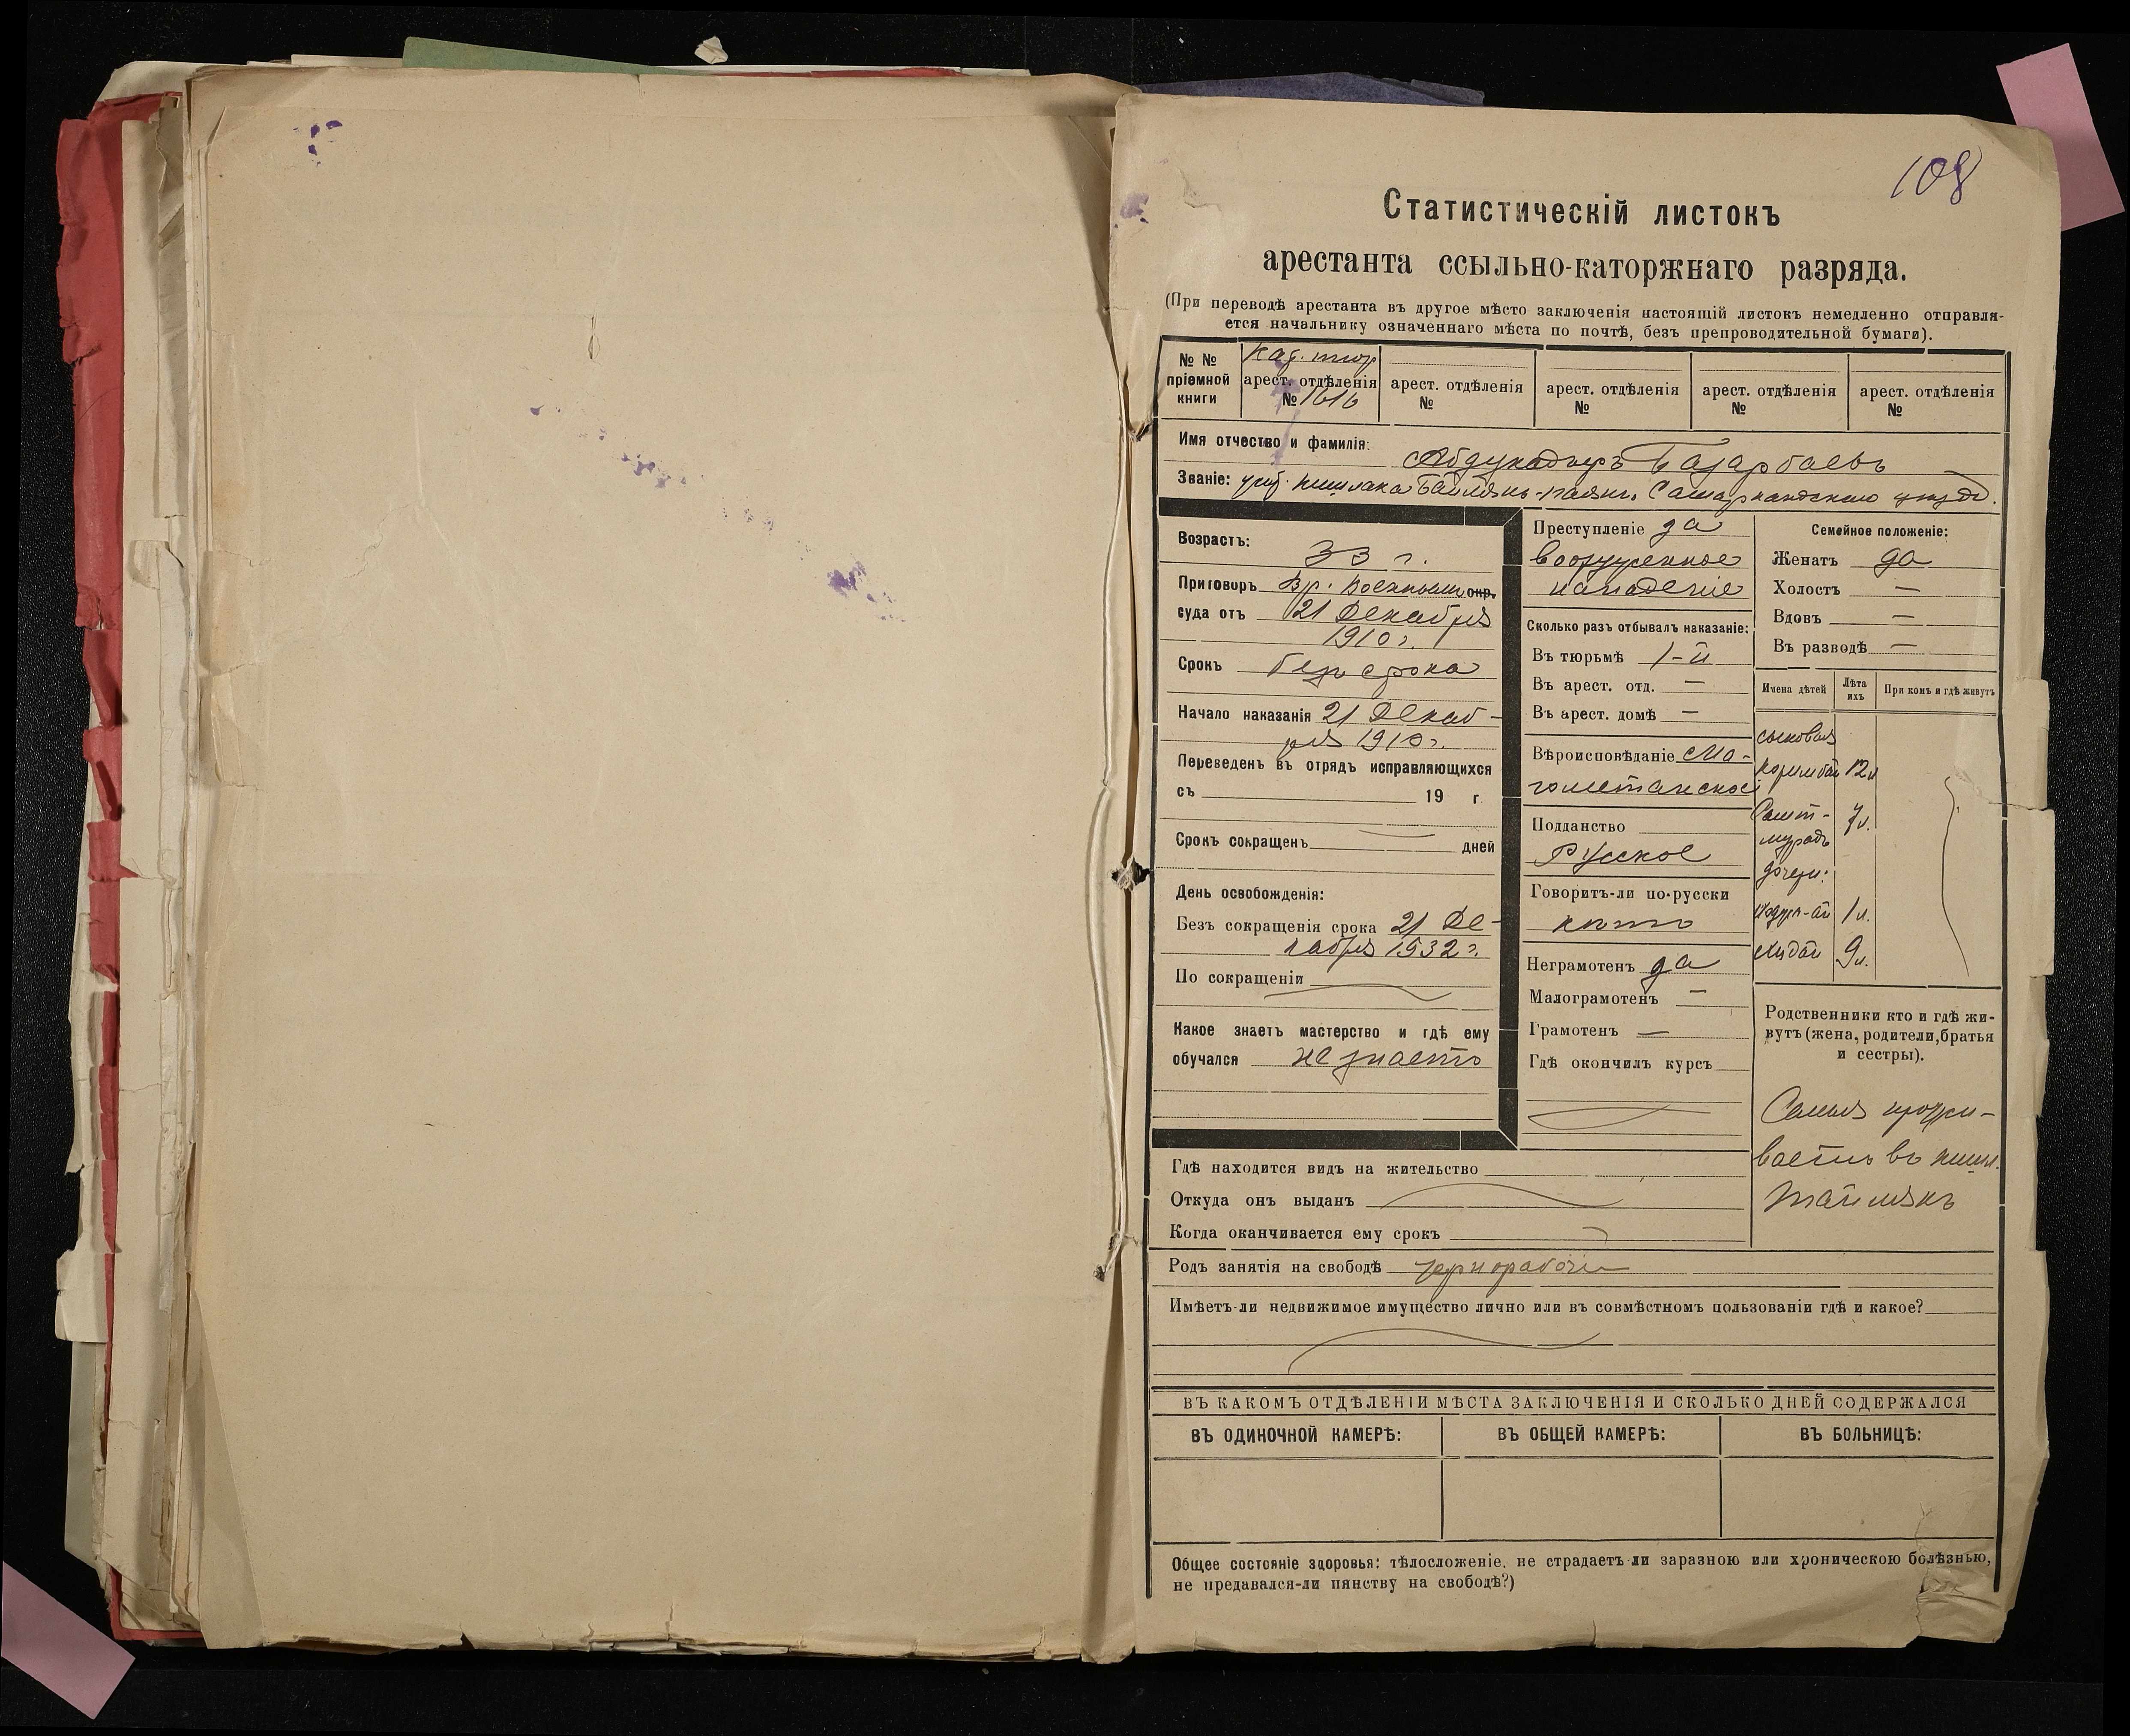 108
Статистическій листокъ
арестанта ссыльно-каторжнаго разряда.
(При переводѣ арестанта въ другое мѣсто заключенія настоящій листокъ немедленно отправля-
ется начальнику означеннаго мѣста по почтѣ, безъ препроводительной бумаги).
№ №
пріемной
книги
Кат. тюр
арест. отдѣленія
№ 1616
арест. отдѣленія
№
арест. отдѣленія
№
арест. отдѣленія
№
арест. отдѣленія
№
Имя отчество и фамилія: Абдукадыръ Базарбаевъ
Званіе: кишлака Самаркандскаго уѣзда.
Возрастъ:
33 г.
Приговоръ Вр. Военнымъ окр.
суда отъ 21 Декабря
1910 г.
Срокъ безъ срока
Начало наказанія 21 Декаб-
ря 1910 г.
Переведенъ въ отрядъ исправляющихся
съ 19 г.
Срокъ сокращенъ дней
День освобожденія:
Безъ сокращенія срока 21 Де-
кабря 1932 г.
По сокращеніи
Какое знаетъ мастерство и гдѣ ему
обучался не знаетъ
Преступленіе за
вооруженное
нападеніе
Сколько разъ отбывалъ наказаніе:
Въ тюрьмѣ 1-й
Въ арест. отд. —
Въ арест. домѣ —
Вѣроисповѣданіе Ма-
гометанское
Подданство
Русское
Говоритъ-ли по-русски
нѣтъ
Неграмотенъ да
Малограмотенъ —
Грамотенъ —
Гдѣ окончилъ курсъ
Семейное положеніе:
Женатъ да
Холостъ —
Вдовъ —
Въ разводѣ —
Имена дѣтей
Лѣта
ихъ
При комъ и гдѣ живутъ
сыновья
12 л
7 л.
мурадъ
дочери:
1 л.
9 л.
Родственники кто и гдѣ жи-
вутъ (жена, родители, братья
и сестры).
Семья прожи-
ваетъ въ кишл.
Тайлякъ
Гдѣ находится видъ на жительство
Откуда онъ выданъ
Когда оканчивается ему срокъ
Родъ занятія на свободѣ чернорабочій
Имѣетъ-ли недвижимое имущество лично или въ совмѣстномъ пользованіи гдѣ и какое?
ВЪ КАКОМЪ ОТДѢЛЕНІИ МѢСТА ЗАКЛЮЧЕНІЯ И СКОЛЬКО ДНЕЙ СОДЕРЖАЛСЯ
ВЪ ОДИНОЧНОЙ КАМЕРѢ:
ВЪ ОБЩЕЙ КАМЕРѢ:
ВЪ БОЛЬНИЦѢ:
Общее состояніе здоровья: тѣлосложеніе, не страдаетъ-ли заразною или хроническою болѣзнью,
не предавался-ли пянству на свободѣ?)